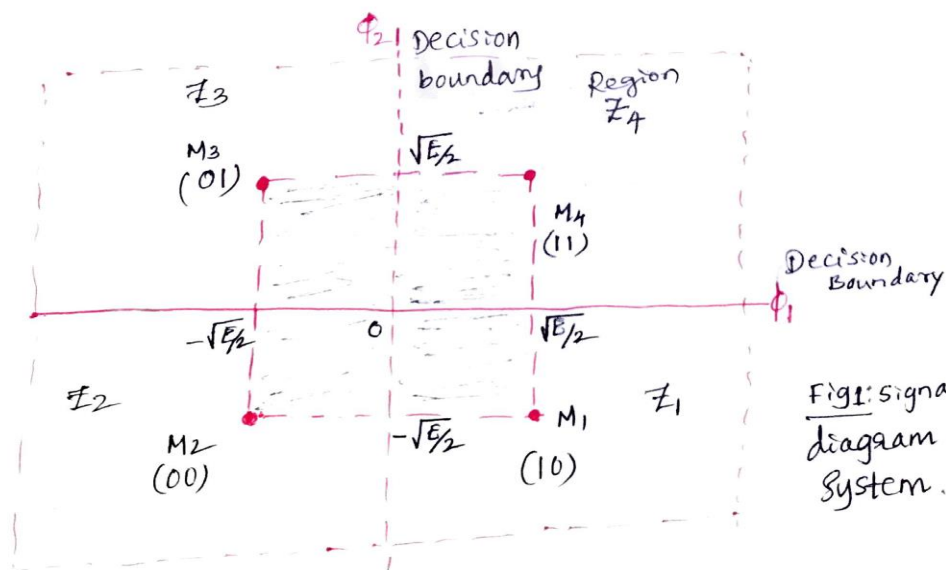 ϕ₂
Decision
boundary
Z₃
Region
Z₄
M₃
(01)
√E/2
M₄
(11)
Decision
Boundary
ϕ₁
-√E/2
0
√E/2
Z₂
M₂
(00)
-√E/2
M₁
(10)
Z₁
Fig1: signa
diagram
System.